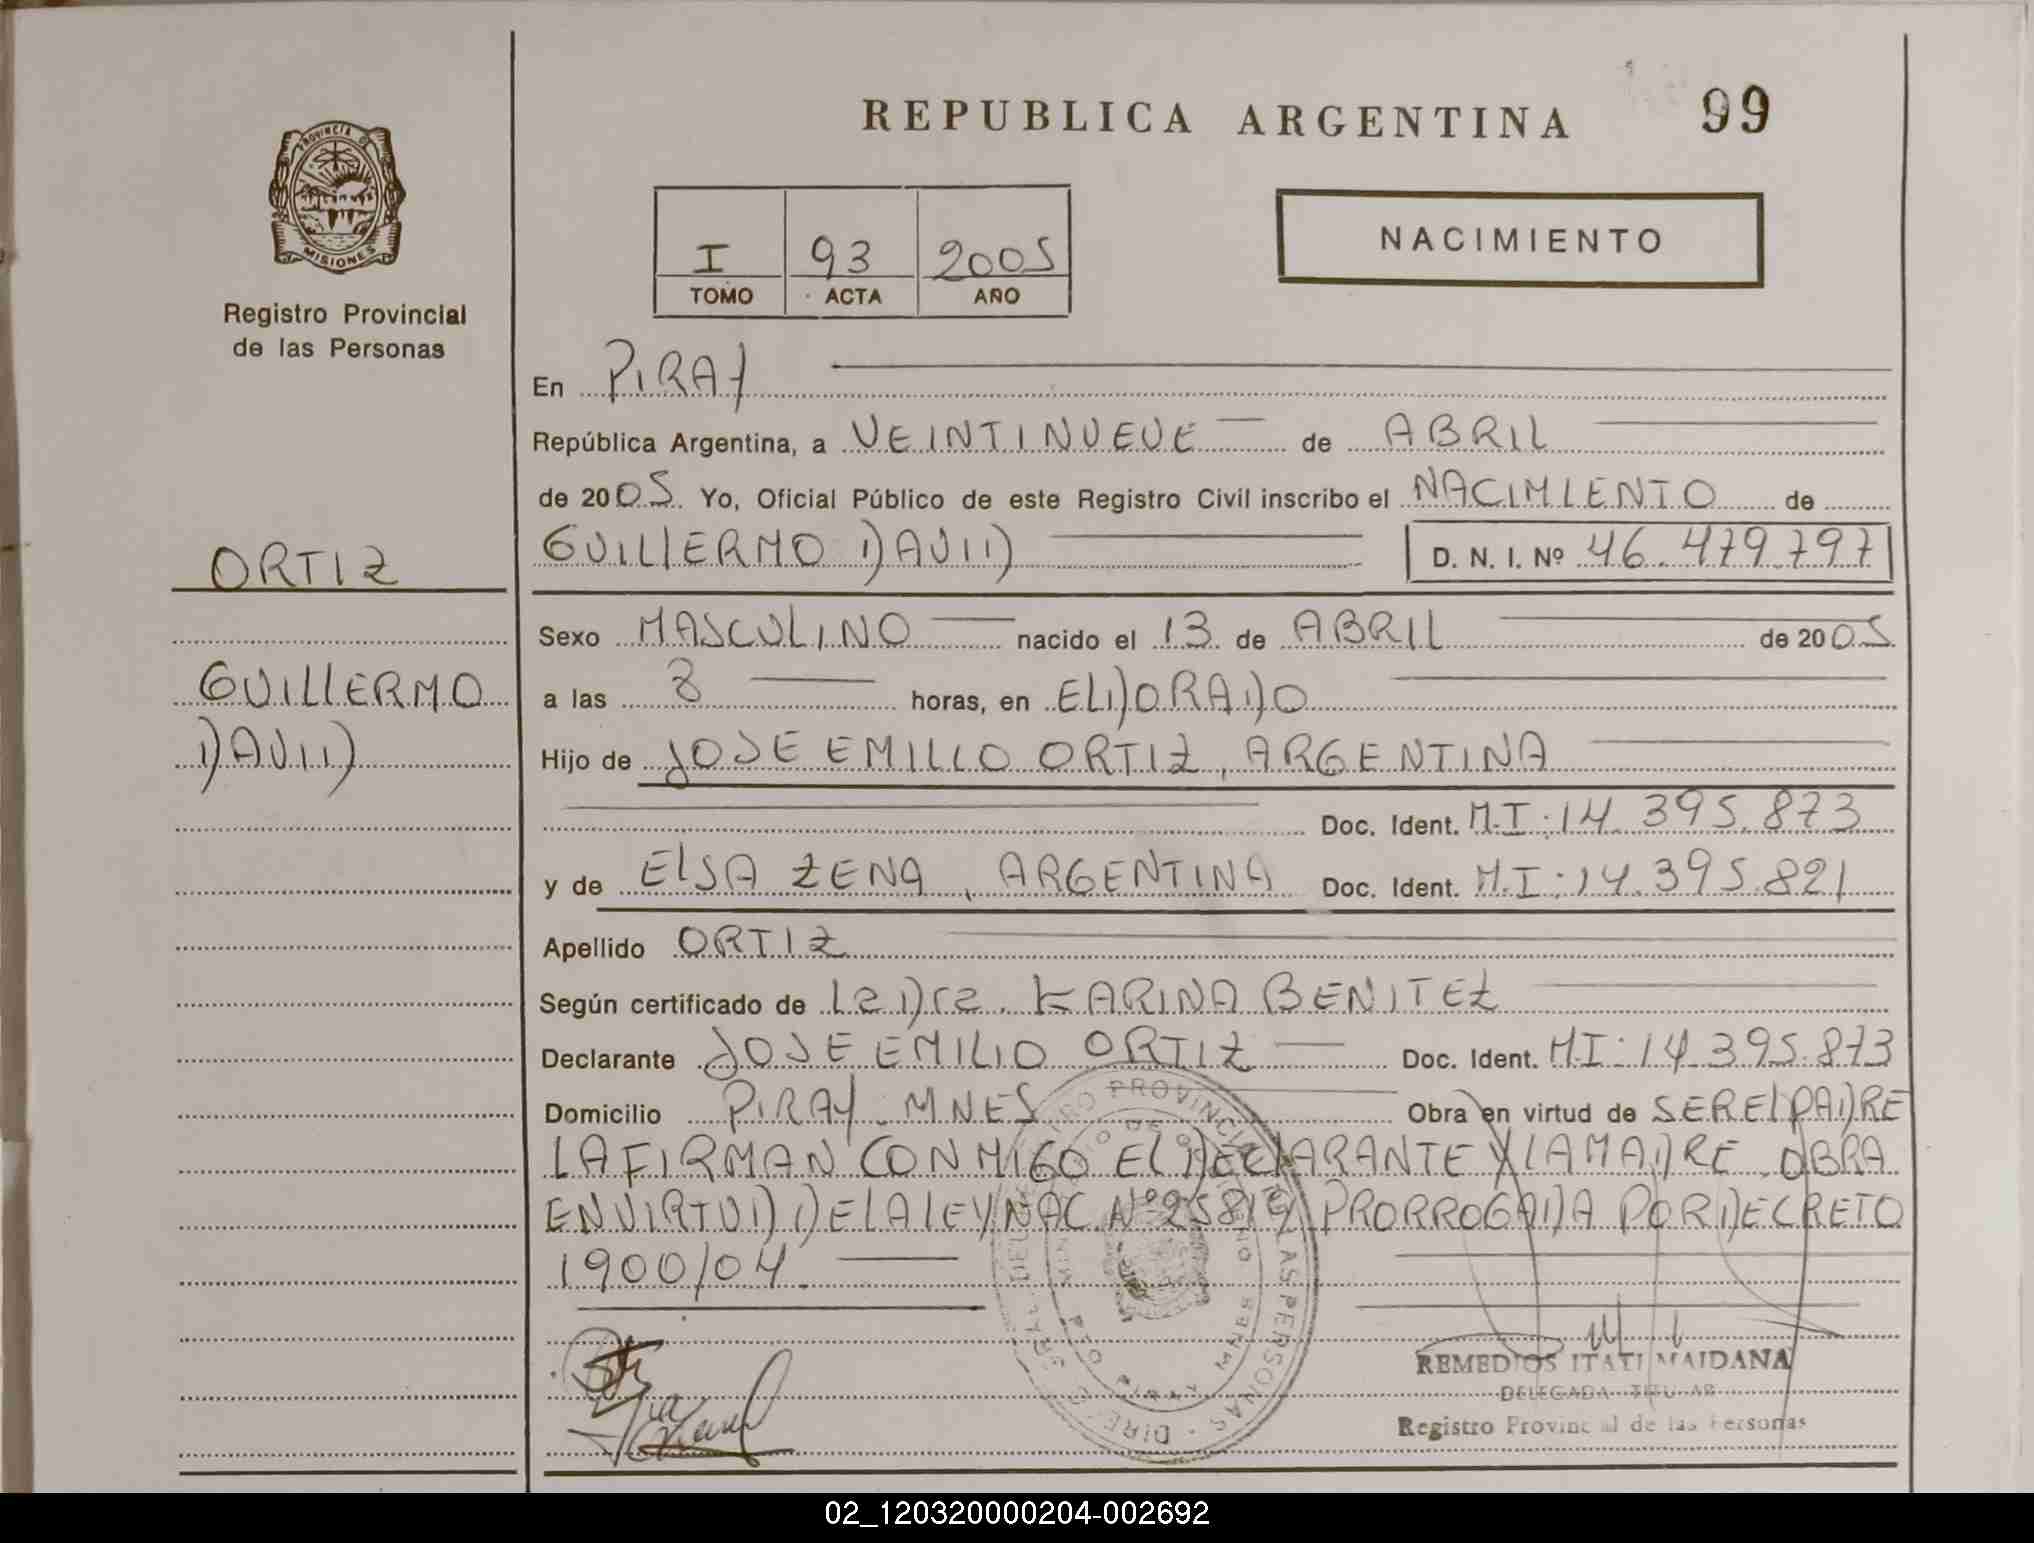 REPUBLICA ARGENTINA 99
PROVINCIA DE MISIONES
Registro Provincial
de las Personas
I 93 2005
TOMO ACTA AÑO
NACIMIENTO
En PIRAY
República Argentina, a VEINTINUEVE de ABRIL
de 2005 Yo, Oficial Público de este Registro Civil inscribo el NACIMIENTO de
GUILLERMO DAVID D. N. I. Nº 46.479.797
ORTIZ
GUILLERMO
DAVID
Sexo MASCULINO nacido el 13 de ABRIL de 2005
a las 8 horas, en ELDORADO
Hijo de JOSE EMILIO ORTIZ, ARGENTINA
Doc. Ident. M.I: 14.395.873
y de ELSA ZENA, ARGENTINA Doc. Ident. M.I: 14.395.821
Apellido ORTIZ
Según certificado de La Dra. KARINA BENITEZ
Declarante JOSE EMILIO ORTIZ Doc. Ident. M.I: 14.395.873
Domicilio PIRAY. MNES Obra en virtud de SER EL PADRE
LA FIRMAN CONMIGO EL DECLARANTE Y LA MADRE. OBRA
EN VIRTUD DE LA LEY NAC. Nº 25819 PRORROGADA POR DECRETO
1900/04.
REMEDIOS ITATI MAIDANA
DELEGADA TITULAR
Registro Provincial de las Personas
02_120320000204-002692